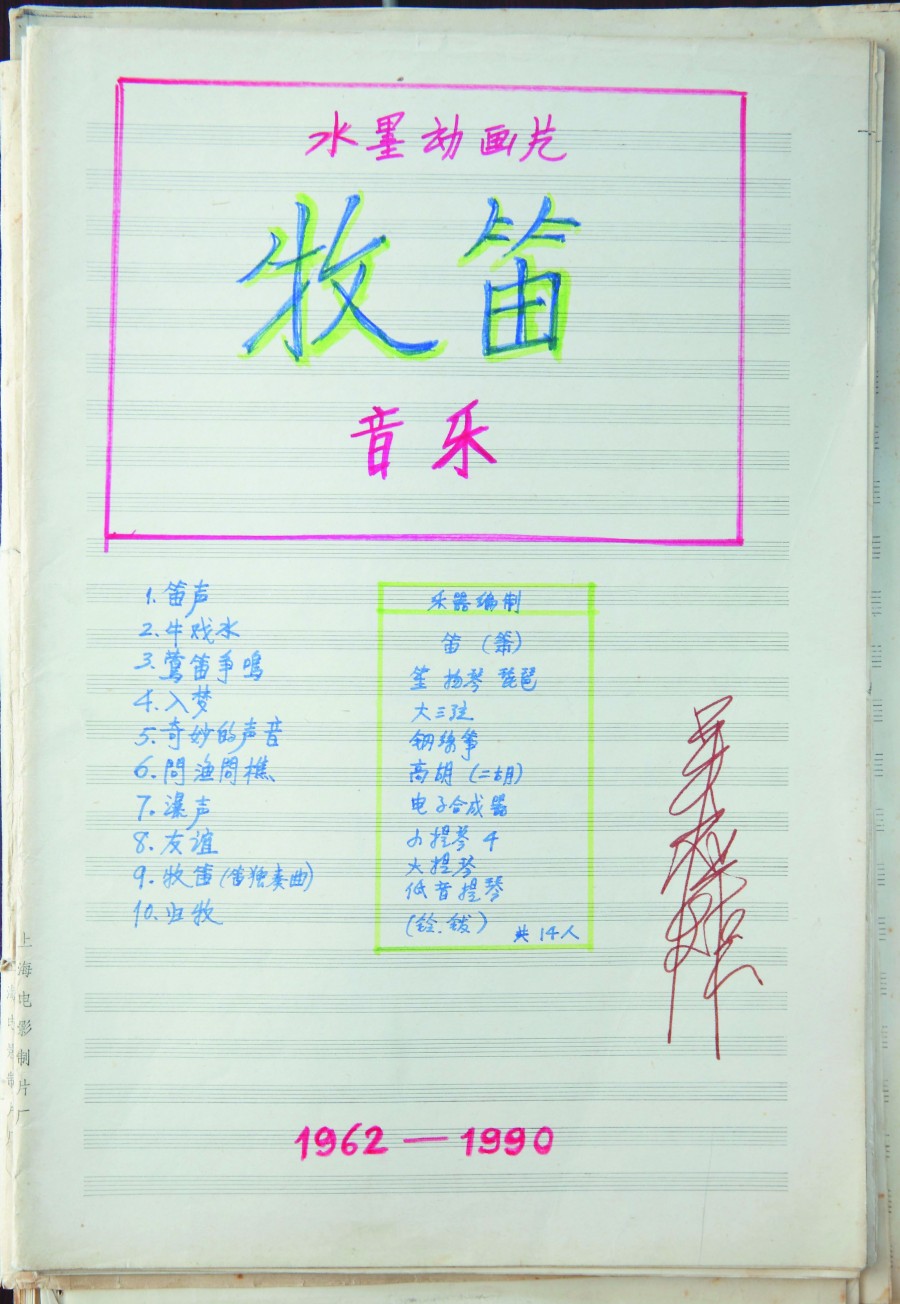 水墨动画片
牧笛
音乐
1. 笛声
2. 牛戏水
3. 莺笛争鸣
4. 入梦
5. 奇妙的声音
6. 問渔問樵
7. 瀑声
8. 友谊
9. 牧笛 (笛独奏曲)
10. 归牧
乐器编制
笛 (箫)
笙 扬琴 琵琶
大三弦
钢丝筝
高胡 (二胡)
电子合成器
小提琴 4
大提琴
低音提琴
(铃.钹) 共14人
吴应炬
上海电影制片厂
1962—1990